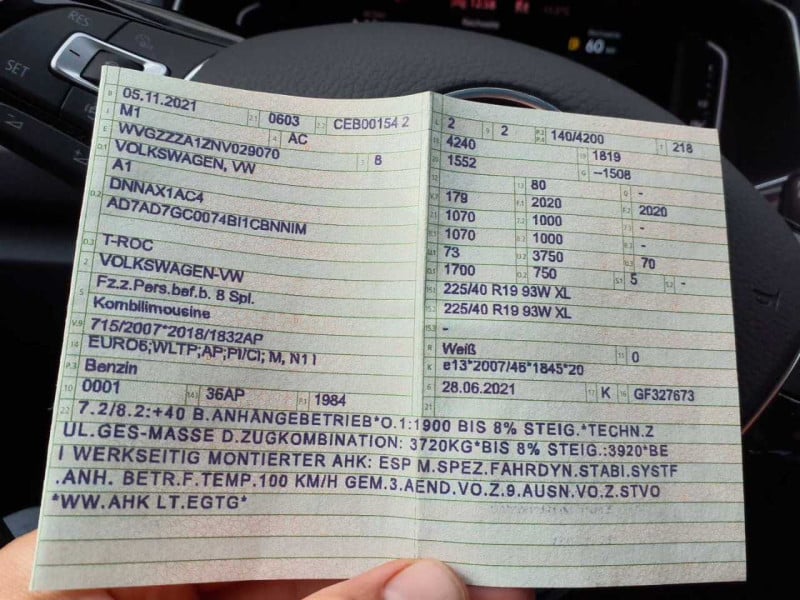 RES
SET
60
B 05.11.2021 2.1 0603 2.2 CEB00154 2
J M1 4 AC
E WVGZZZA1ZNV029070 3 8
D.1 VOLKSWAGEN, VW
A1
D.2 DNNAX1AC4
AD7AD7GC0074BI1CBNNIM
D.3 T-ROC
2 VOLKSWAGEN-VW
5 Fz.z.Pers.bef.b. 8 Spl.
Kombilimousine
V.9 715/2007*2018/1832AP
14 EURO6;WLTP;AP;PI/CI; M, N1 I
P.3 Benzin
10 0001 14.1 36AP P.1 1984
22 7.2/8.2:+40 B.ANHÄNGEBETRIEB*O.1:1900 BIS 8% STEIG.*TECHN.Z
UL.GES-MASSE D.ZUGKOMBINATION: 3720KG*BIS 8% STEIG.:3920*BE
I WERKSEITIG MONTIERTER AHK: ESP M.SPEZ.FAHRDYN.STABI.SYSTF
.ANH. BETR.F.TEMP.100 KM/H GEM.3.AEND.VO.Z.9.AUSN.VO.Z.STVO
*WW.AHK LT.EGTG*
L 2 9 2 P.2 P.4 140/4200 T 218
18 4240 19 1819
20 1552 G --1508
12 - 13 80 Q -
V.7 179 F.1 2020 F.2 2020
7.1 1070 7.2 1000 7.3 -
8.1 1070 8.2 1000 8.3 -
U.1 73 U.2 3750 U.3 70
O.1 1700 O.2 750 S.1 5 S.2 -
15.1 225/40 R19 93W XL
15.2 225/40 R19 93W XL
15.3 -
R Weiß 11 0
K e13*2007/46*1845*20
6 28.06.2021 17 K 16 GF327673
21